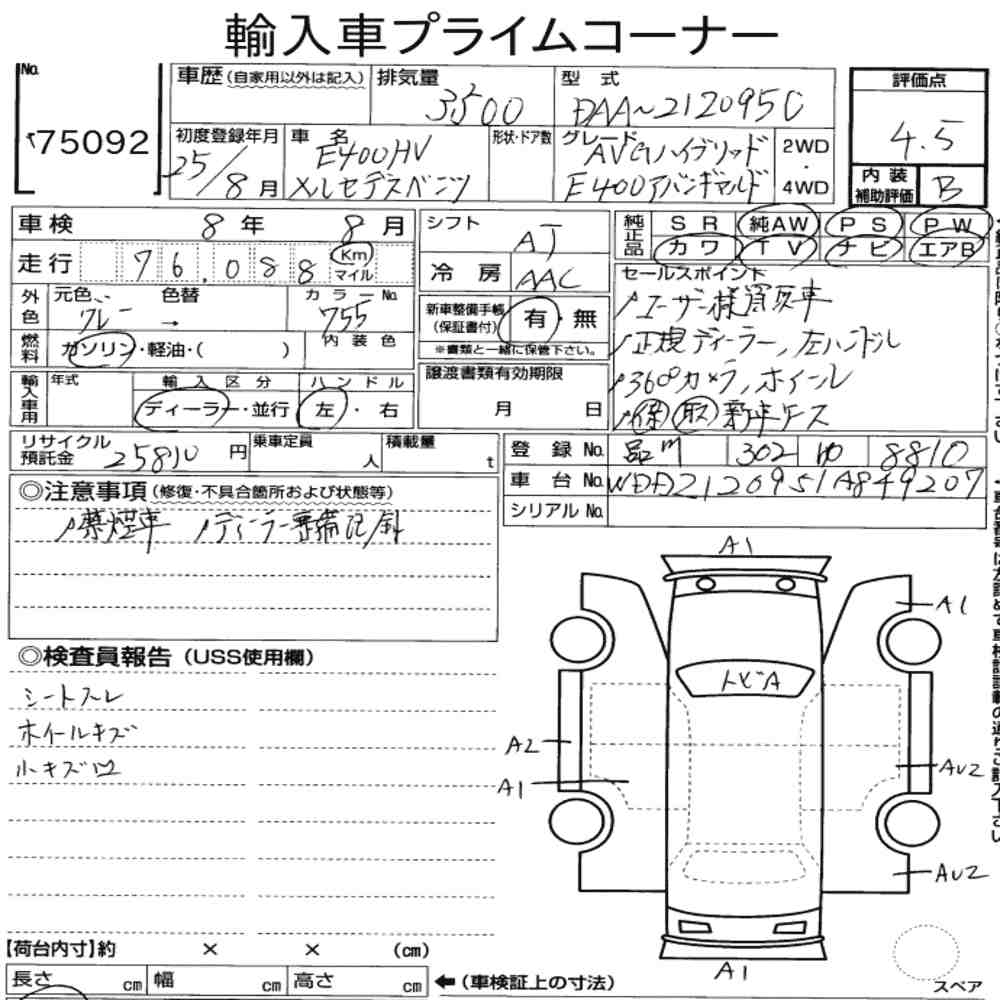 輸入車プライムコーナー
No.
75092
車歴 (自家用以外は記入)
排気量
3500
型 式
DAA~212095C
評価点
4.5
内装補助評価
B
初度登録年月
25/8月
車 名
E400HV
メルセデスベンツ
形状・ドア数
グレード
AVGハイブリッド
E400アバンギャルド
2WD
・
4WD
車検 8年 8月
走行 76,088 Km マイル
外色
元色 グレー
色替 →
カラーNo. 755
燃料
ガソリン・軽油・( )
内装色
輸入車用
年式
輸入区分
ディーラー・並行
ハンドル
左・右
シフト AT
冷房 AAC
新車整備手帳(保証書付) 有・無
※書類と一緒に保管下さい。
譲渡書類有効期限
月 日
純正品
SR 純AW PS PW
カワ TV ナビ エアB
セールスポイント
ユーザー様買取車
正規ディーラー,左ハンドル
360°カメラ,ホイール
保 取 新車ケース
リサイクル預託金 25810円
乗車定員 人
積載量 t
登録No. 品川 302 ゆ 8810
車台No. WDD2120951A849207
シリアルNo.
◎注意事項 (修復・不具合箇所および状態等)
禁煙車 ディーラー整備記録
◎検査員報告 (USS使用欄)
シートスレ
ホイールキズ
小キズ凹
A1
A1
トビA
A2
A1
AU2
AU2
A1
スペア
【荷台内寸】約 × × (cm)
長さ cm 幅 cm 高さ cm
←(車検証上の寸法)